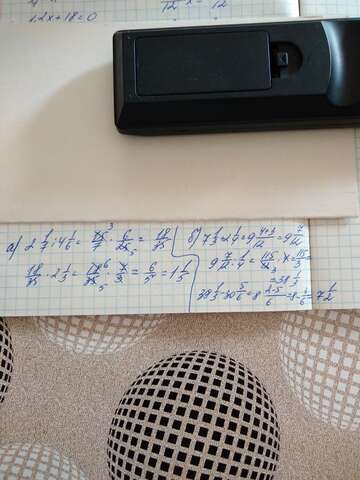 1,2x+18=0
12 12
а) 2 1/7 : 4 1/6 = 15/7 · 6/25 = 18/35
18/35 · 2 1/3 = 18/35 · 7/3 = 6/5 = 1 1/5
б) 7 1/3 + 2 1/4 = 9 4+3/12 = 9 7/12
9 7/12 : 1/4 = 115/12 · 4 = 115/3 =
= 38 1/3
38 1/3 - 30 5/6 = 8 2-5/6 = 8 - 3/6 = 7 1/2